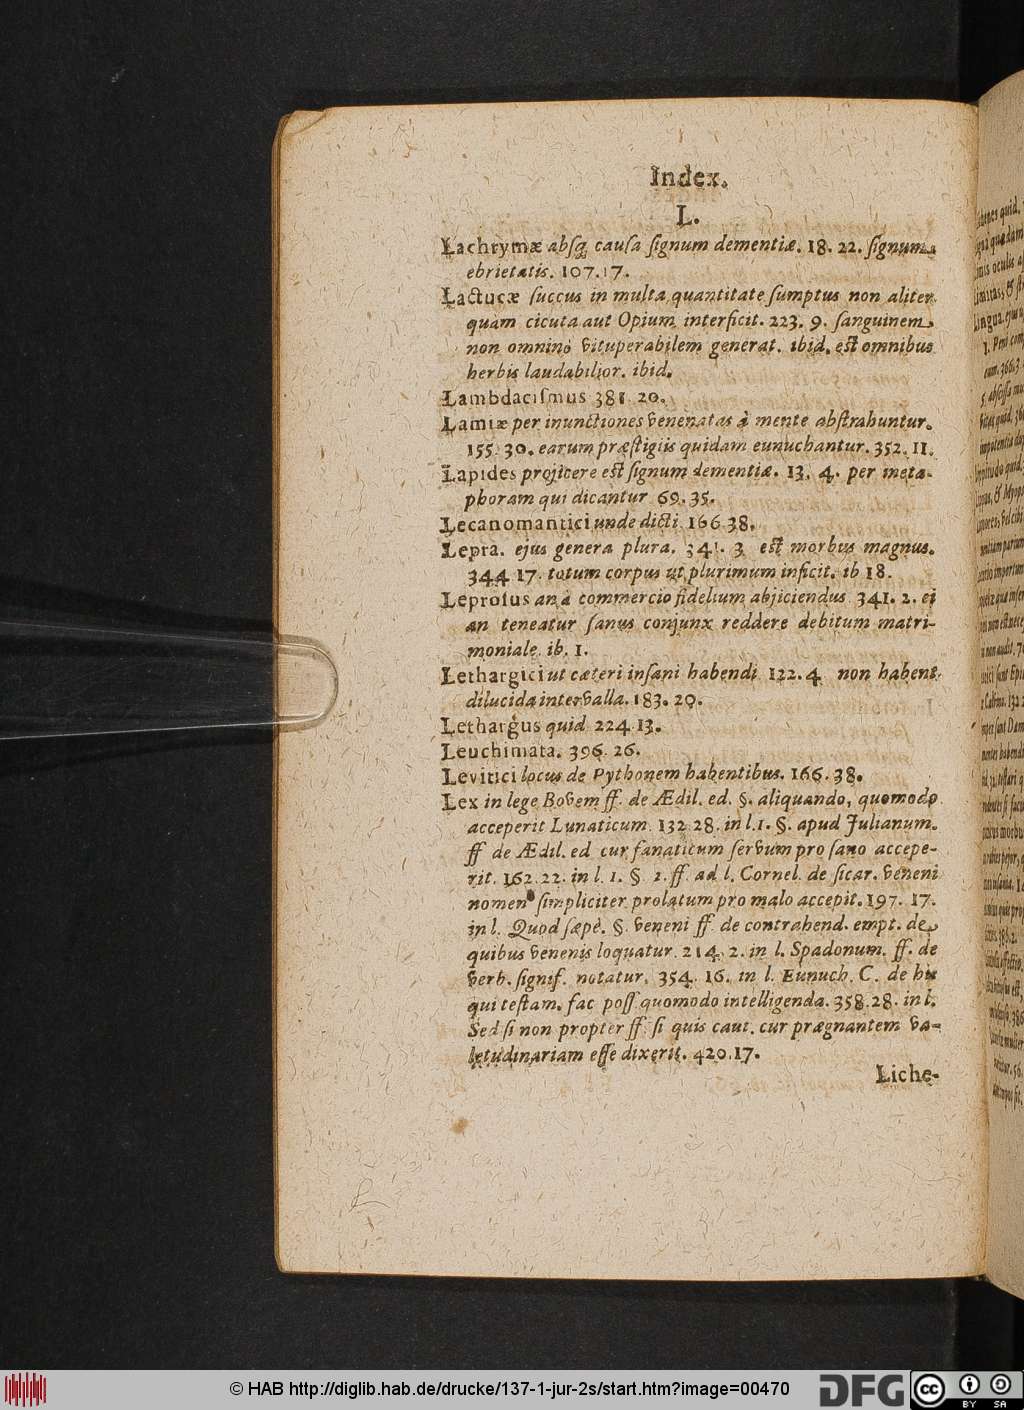 Index.
L.
Lachrymæ absq́; causa signum dementiæ. 18. 22. signum
ebrietatis. 107. 17.
Lactucæ succus in multa quantitate sumptus non aliter
quàm cicuta aut Opium interficit. 223. 9. sanguinem
non omninò vituperabilem generat. ibid. est omnibus
herbis laudabilior. ibid.
Lambdacismus 381. 20.
Lamiæ per inunctiones venenatas à mente abstrahuntur.
155. 30. earum præstigiis quidam eunuchantur. 352. 11.
Lapides projicere est signum dementiæ. 13. 4. per meta-
phoram qui dicantur 69. 35.
Lecanomantici unde dicti 166 38.
Lepra. ejus genera plura. 341. 3 est morbus magnus.
344 17. totum corpus ut plurimum inficit. ib 18.
Leprosus an à commercio fidelium abjiciendus 341. 2. ei
an teneatur sanus conjunx reddere debitum matri-
moniale. ib. 1.
Lethargici ut cæteri insani habendi 122. 4 non habent
dilucida intervalla. 183. 20.
Lethargus quid 224 13.
Leuchimata. 396. 26.
Levitici locus de Pythonem habentibus. 166. 38.
Lex in lege Bovem ff. de Ædil. ed. §. aliquando, quomodo
acceperit Lunaticum 132 28. in l. 1. §. apud Julianum.
ff de Ædil. ed cur fanaticum servum pro sano accepe-
rit. 162. 22. in l. 1. §. 2. ff. ad l. Cornel. de sicar. veneni
nomen simpliciter prolatum pro malo accepit. 197. 17.
in l. Quod sæpè. §. veneni ff. de contrahend. empt. de
quibus venenis loquatur. 214. 2. in l. Spadonum. ff. de
verb. signif. notatur. 354. 16. in l. Eunuch. C. de his
qui testam. fac poss quomodo intelligenda. 358. 28. in l.
Sed si non propter ff. si quis caut. cur prægnantem va-
letudinariam esse dixerit. 420. 17.
Liche-
© HAB http://diglib.hab.de/drucke/137-1-jur-2s/start.htm?image=00470
DFG
cc
BY SA